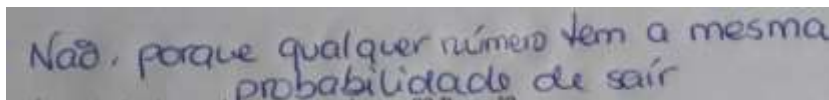 Não, porque qualquer número tem a mesma
probabilidade de saír